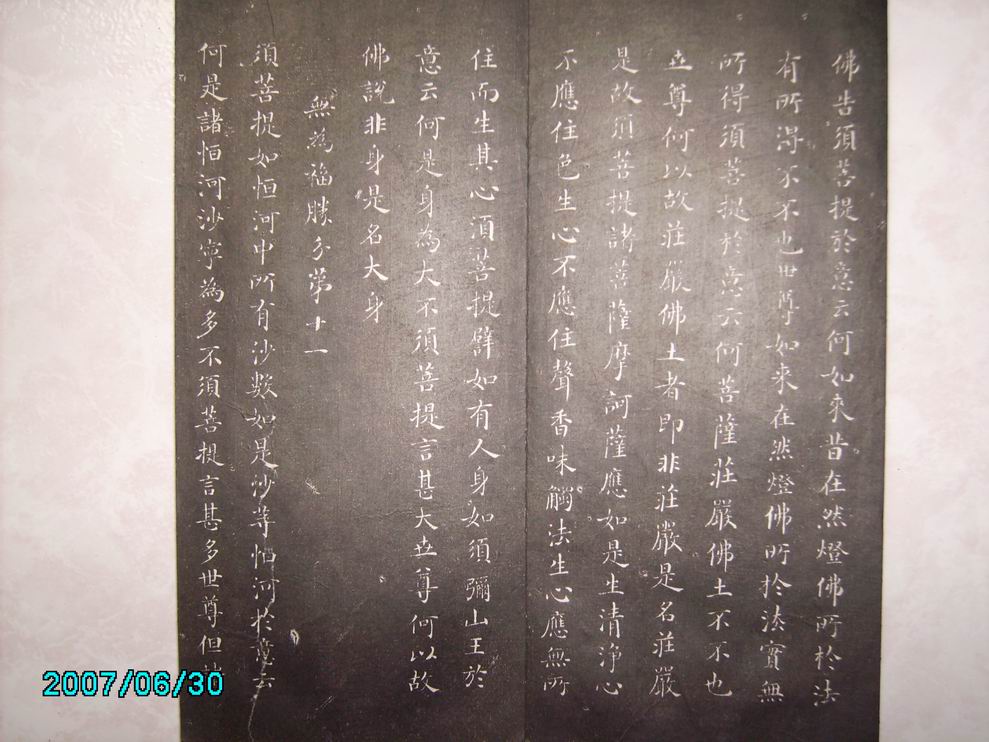 佛告須菩提於意云何如來昔在然燈佛所於法
有所得不不也世尊如来在然燈佛所於法實無
所得須菩提於意云何菩薩莊嚴佛土不不也
世尊何以故莊嚴佛土者即非莊嚴是名莊嚴
是故須菩提諸菩薩摩訶薩應如是生清淨心
不應住色生心不應住聲香味觸法生心應無所
住而生其心須菩提譬如有人身如須彌山王於
意云何是身為大不須菩提言甚大世尊何以故
佛說非身是名大身
無為福勝分第十一
須菩提如恒河中所有沙數如是沙等恒河於意云
何是諸恒河沙寧為多不須菩提言甚多世尊但
2007/06/30